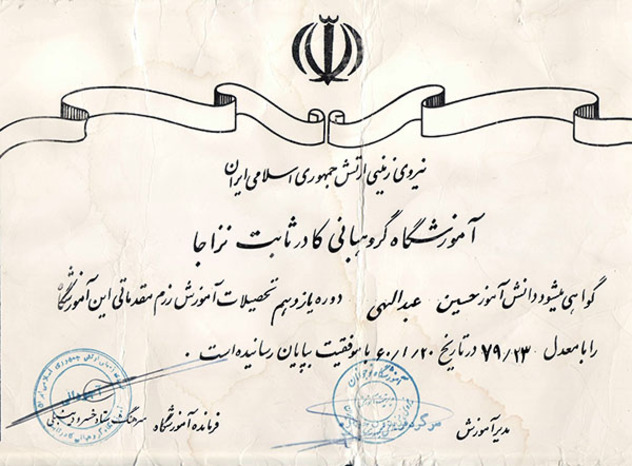 نیروی زمینی ارتش جمهوری اسلامی ایران
آموزشگاه گروهبانی کادر ثابت نزاجا
گواهی میشود دانش آموز حسین عبدالهی دوره یازدهم تحصیلات آموزش رزم مقدماتی این آموزشگاه
را با معدل ۷۹/۲۳ در تاریخ ۶۰/۱/۲۰ با موفقیت بپایان رسانیده است.
مدیر آموزش
فرمانده آموزشگاه سرهنگ ستاد خسرو